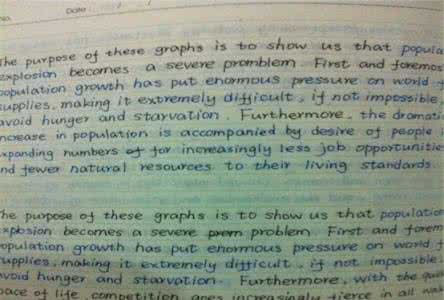 No. Date
The purpose of these graphs is to show us that popula
explosion becomes a severe promblem. First and foremos
population growth has put enormous pressure on world f
supplies, making it extremely difficult, if not impossible,
avoid hunger and starvation. Furthermore, the dramati
increase in population is accompanied by desire of people
expanding numbers of for increasingly less job opportunitie
and fewer natural resources to their living standards.
The purpose of these graphs is to show us that population
explosion becomes a severe prem problem. First and forem
population growth has put enormous pressure on world f
supplies, making it extremely difficult, if not impossible.
avoid hunger and starvation. Furthermore, with the qui
pace of life, competition goes increasingly fierce in all wa